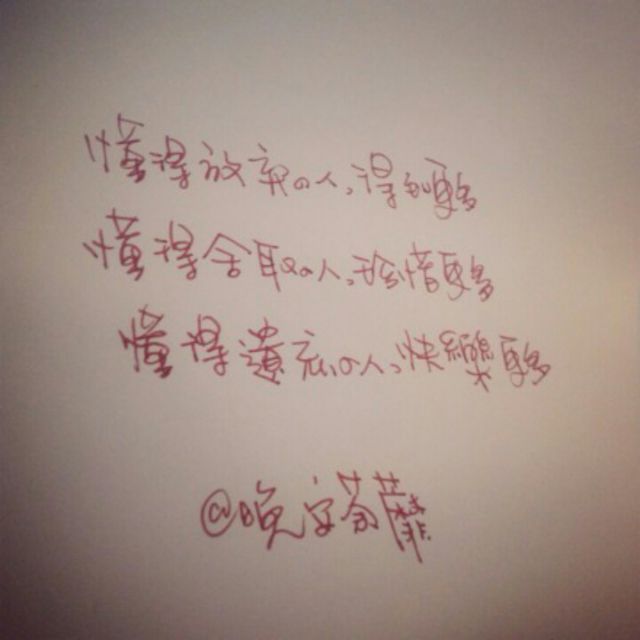 懂得放棄の人、得到更多
懂得舍取の人、珍惜更多
懂得遺忘の人、快樂更多
@晚安芬靡